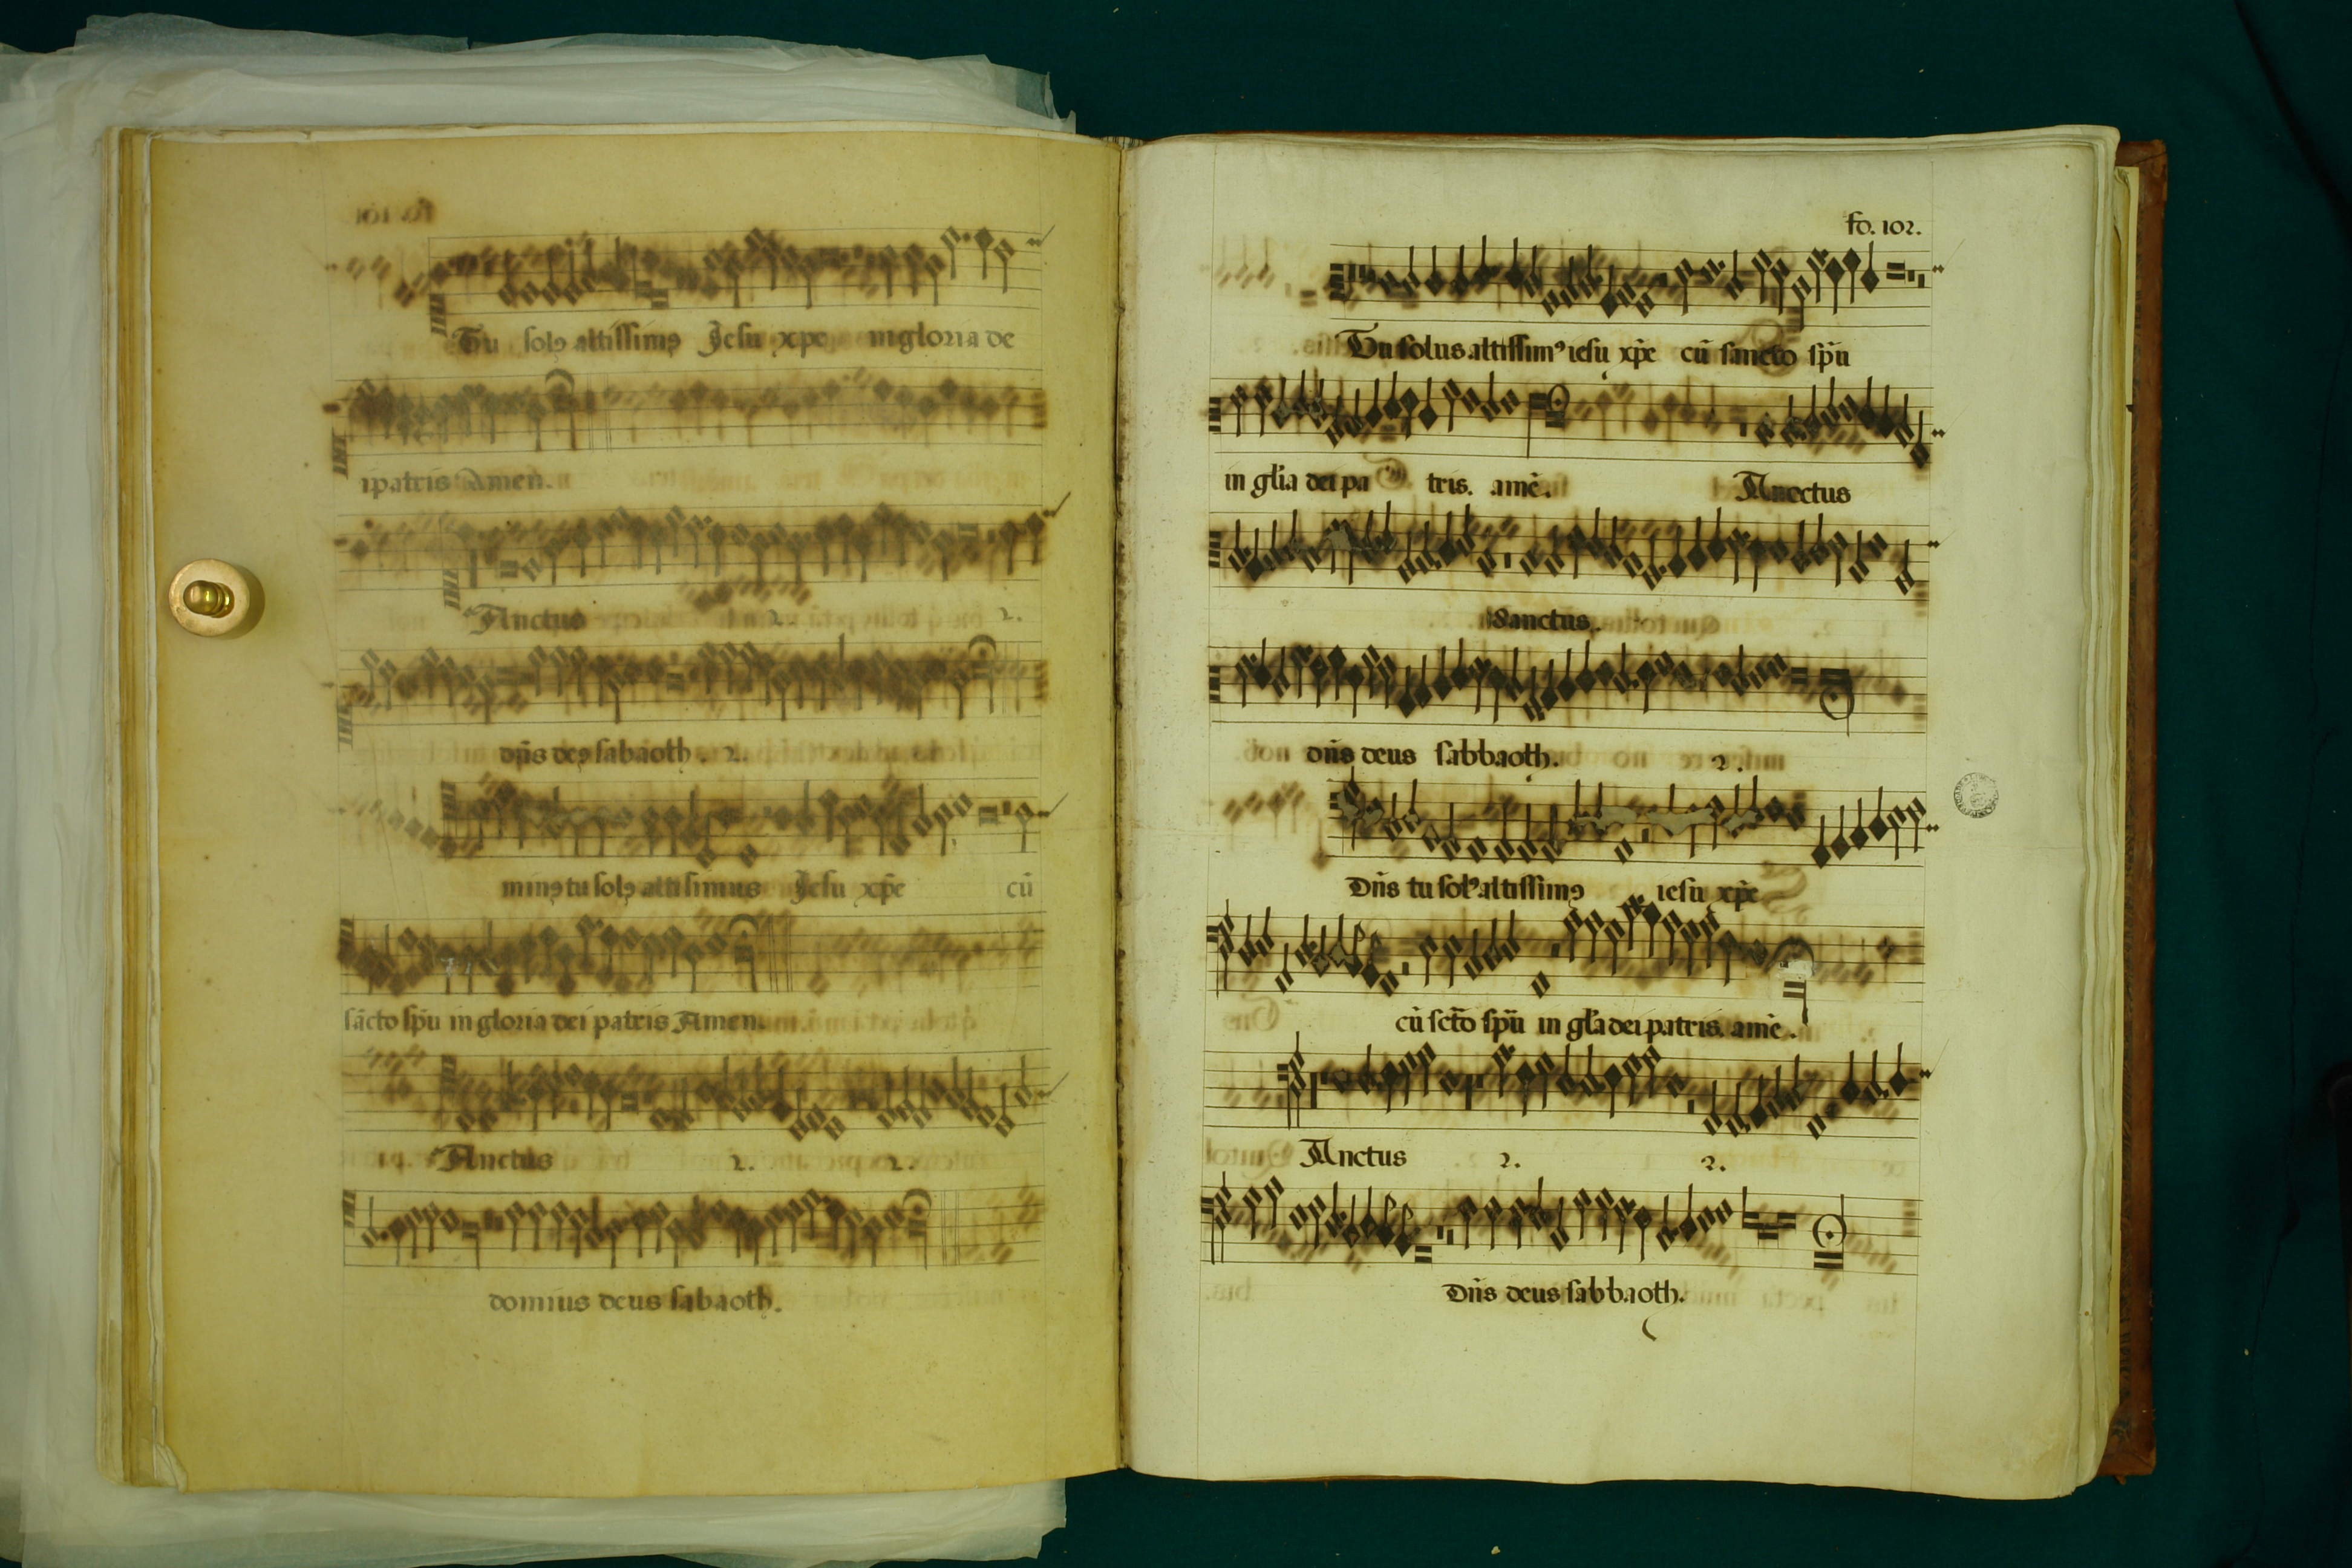 Tu solꝯ altissimꝯ Jesu xp̄e in gloria de
i patris Amen.
Anctus 2. 2.
dn̄s deꝯ sabaoth. 2.
minꝯ tu solꝯ altisimus Jesu xp̄e cū
sācto sp̄u in gloria dei patris Amen.
Anctus 2. 2.
domius deus sabaoth.
fo. 102.
Tu solus altissimꝰ iesu xp̄e cū sancto sp̄u
in gl̄ia dei pa tris. amē. Anctus
Sanctus.
dn̄s deus sabbaoth. 2.
Dn̄s tu solꝰ altissimꝯ iesu xp̄e
cū sct̄o sp̄u in gl̄a dei patris. amē.
Anctus 2. 2.
Dn̄s deus sabbaoth.